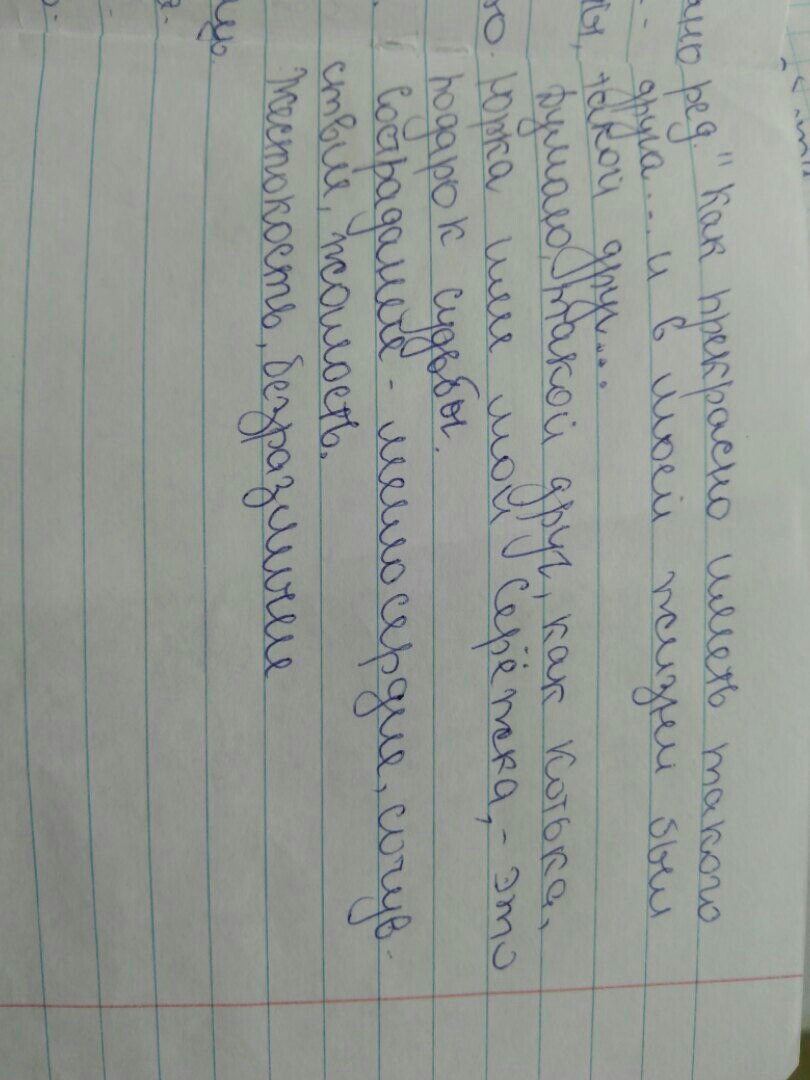 ано ред. "Как прекрасно иметь такого
друга... и в моей жизни был
такой друг...
Думаю, такой друг, как Котька,
Юрка или мой Серёжка, - это
подарок судьбы.
Сострадание - милосердие, сочув-
ствие, жалость.
Жестокость, безразличие